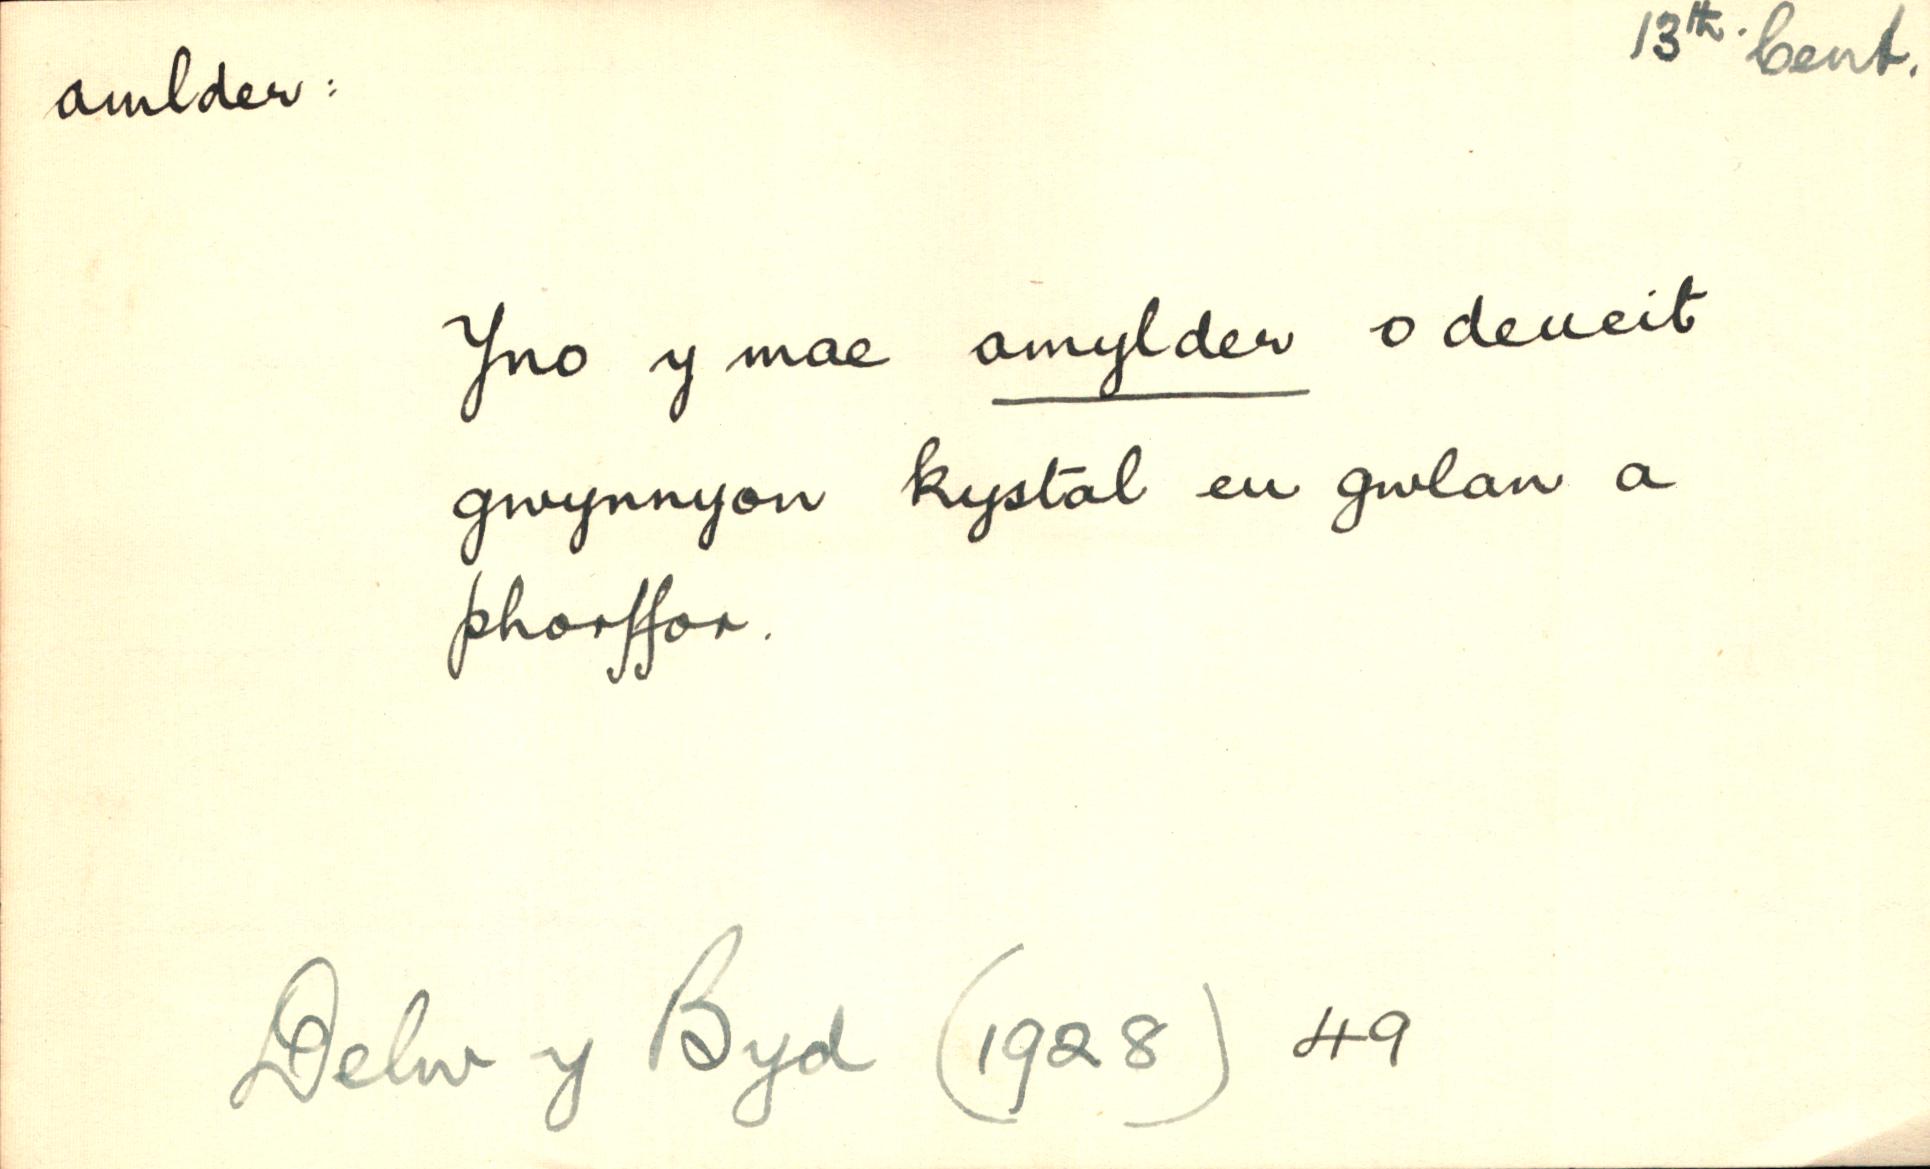 13th. Cent.
amlder:
Yno y mae amylder o deueit
gwynnyon kystal eu gwlan a
phorffor.
Delw y Byd (1928) 49